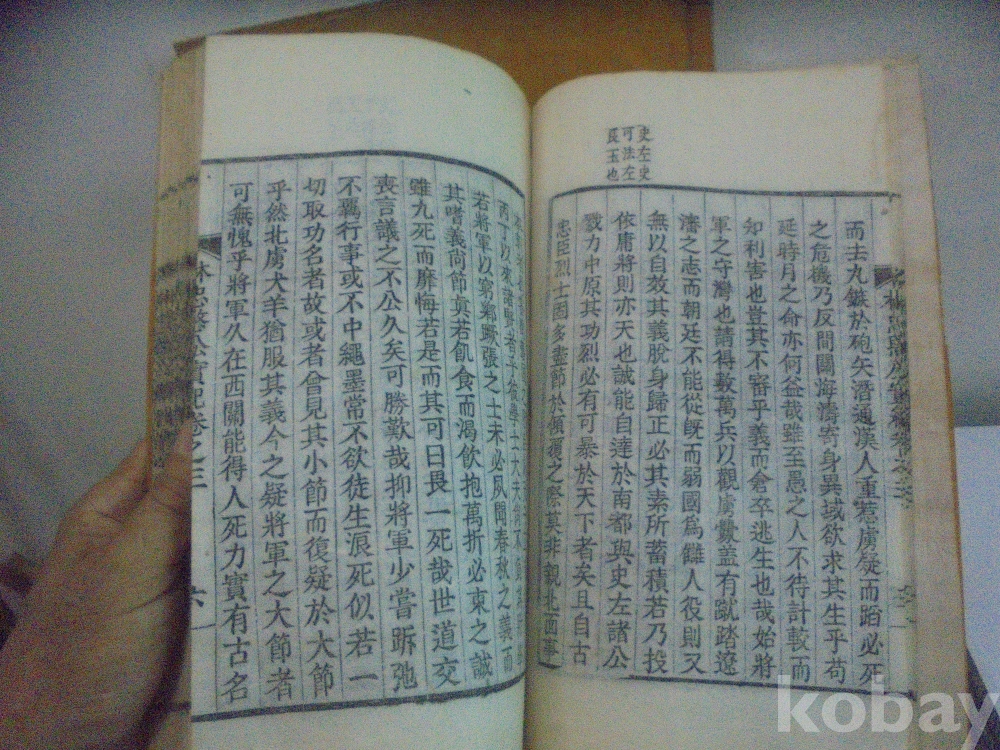 史左史
可法左
良玉也
而去九鏃於砲矢潛通漢人重惹虜疑而蹈必死
之危機乃反間關海濤寄身異域欲求其生乎苟
延時月之命亦何益哉雖至愚之人不待計較而
知利害也豈其不審乎義而倉卒逃生也哉始將
軍之守灣也請得數萬兵以覘虜釁盖有蹴踏遼
瀋之志而朝廷不能從旣而弱國爲讎人役則又
無以自效其義脫身歸正必其素所蓄積若乃投
依庸將則亦天也誠能自達於南都與史左諸公
戮力中原其功烈必有可暴於天下者矣且自古
忠臣烈士固多盡節於傾覆之際莫非親北面事
丙丁以來諸野老子後學士大夫
若將軍以窮鄕蹶張之士未必夙聞春秋之義而
其嗜義尙節眞若飢食而渴飮抱萬折必東之誠
雖九死而靡悔若是而其可曰畏一死哉世道交
喪言議之不公久矣可勝歎哉抑將軍少嘗跅弛
不羈行事或不中繩墨常不欲徒生浪死似若一
切取功名者故或者曾見其小節而復疑於大節
乎然北虜犬羊猶服其義今之疑將軍之大節者
可無愧乎將軍久在西關能得人死力實有古名
林忠愍公實記卷之三
六
kobay